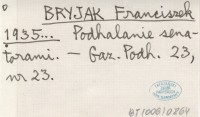 BRYJAK Franciszek
1935... Podhalanie sena-
torami. — Gaz. Podh. 23,
nr 23.